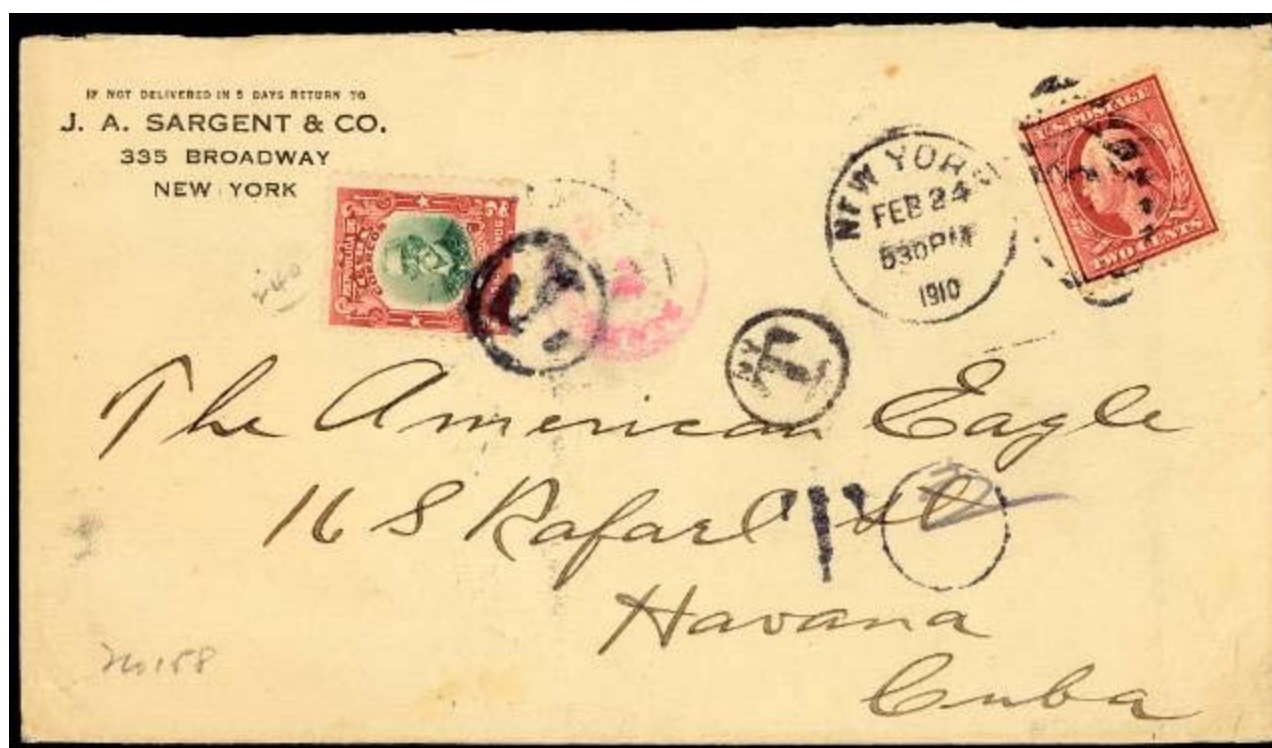 IF NOT DELIVERED IN 5 DAYS RETURN TO
J. A. SARGENT & CO.
335 BROADWAY
NEW YORK
NEW YORK
FEB 24
530 PM
1910
U.S. POSTAGE
TWO CENTS
CORREOS
T
NY
T
2
The American Eagle
16 S Rafael St
Havana
Cuba